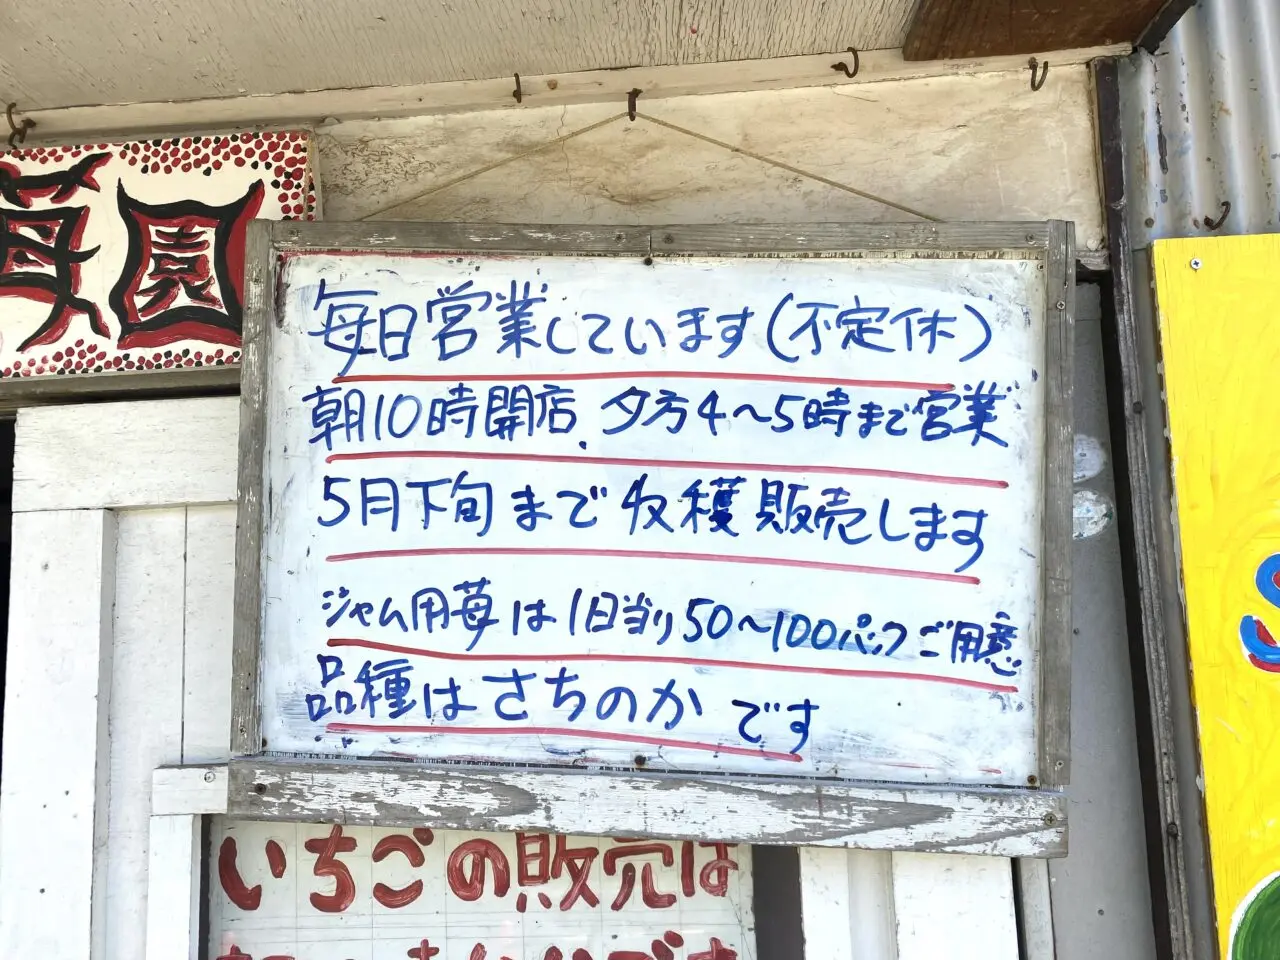 苺園
毎日営業しています(不定休)
朝10時開店、夕方4〜5時まで営業
5月下旬まで収穫販売します
ジャム用苺は1日当り50〜100パックご用意
品種はさちのかです
いちごの販売は